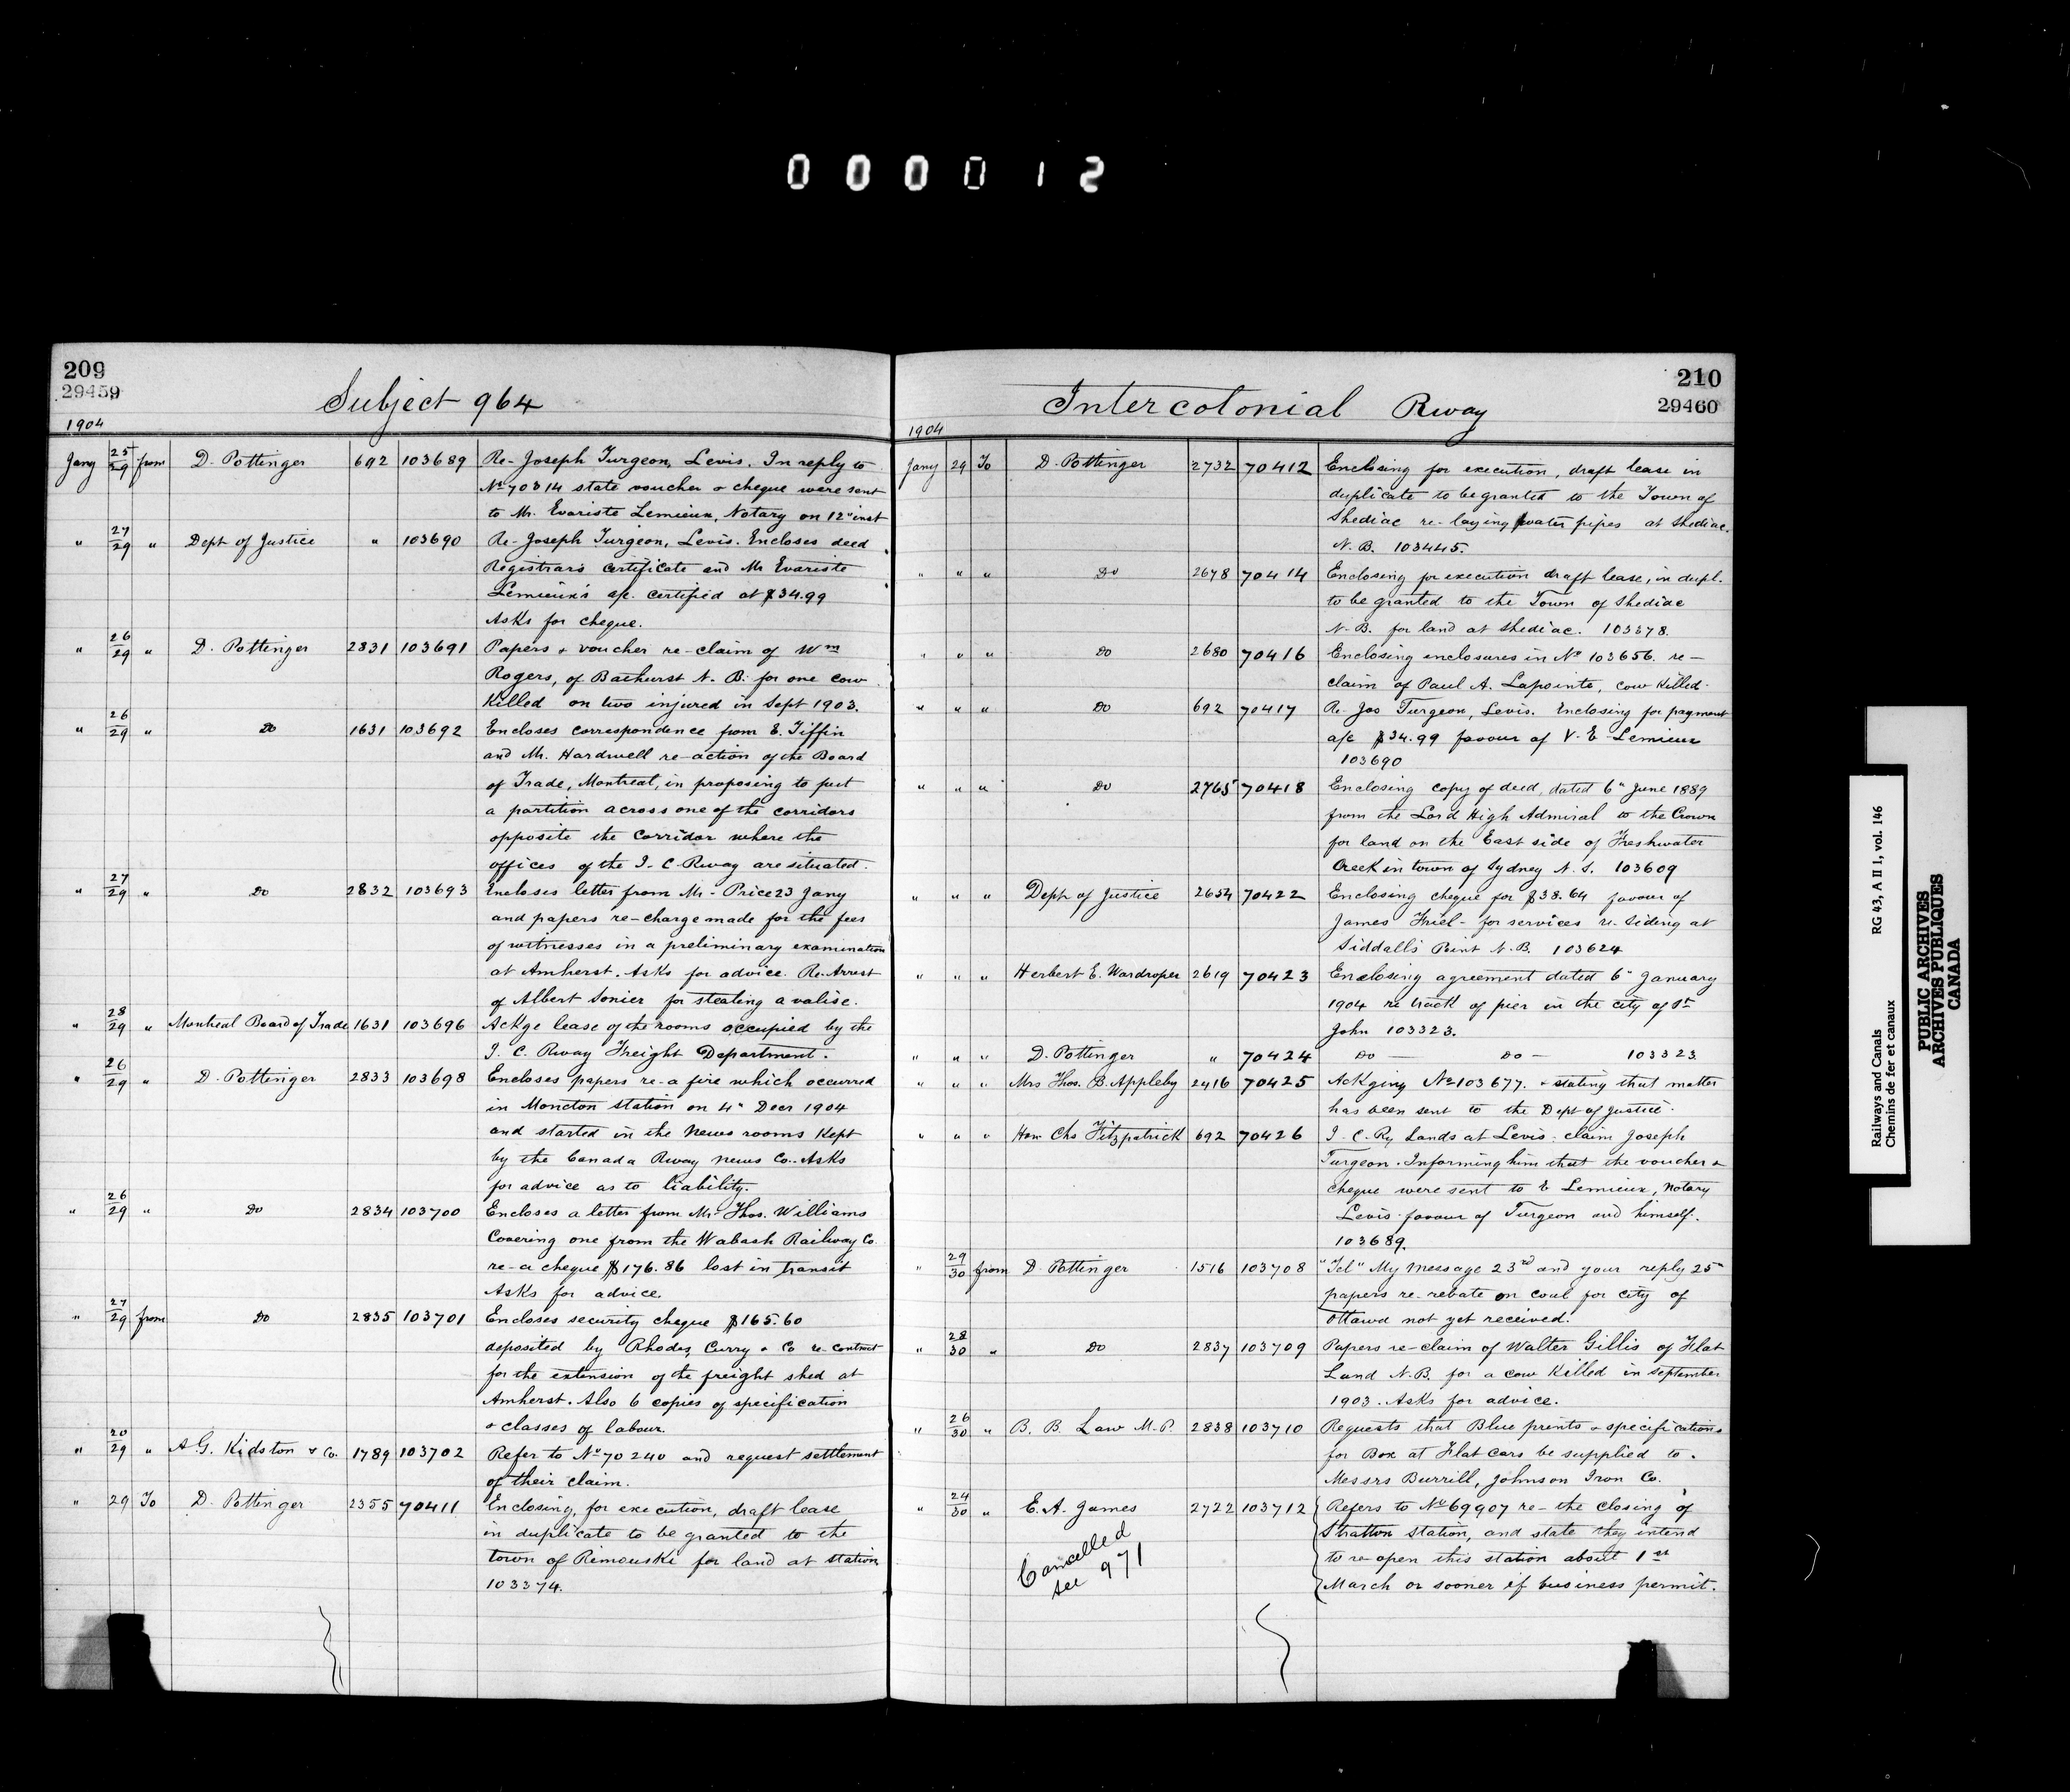 000012
209
29459
Subject 964
1904
Jany 25/29 from D. Pottinger 692 103689 Re- Joseph Turgeon, Levis. In reply to
No 70314 state voucher & cheque were sent
to Mr. Evariste Lemieux, Notary on 12" inst
" 27/29 " Dept of Justice " 103690 Re- Joseph Turgeon, Levis. Encloses deed
Registrar's Certificate and Mr Evariste
Lemieux's a/c. certified at $34.99
Asks for cheque.
" 26/29 " D. Pottinger 2831 103691 Papers & voucher re-claim of Wm
Rogers, of Bathurst N. B. for one cow
Killed on two injured in Sept 1903.
" 26/29 " Do 1631 103692 Encloses correspondence from E. Tiffin
and Mr. Hardwell re-action of the Board
of Trade, Montreal, in proposing to put
a partition across one of the corridors
opposite the Corridor where the
offices of the I. C. Rway are situated.
" 27/29 " Do 2832 103693 Encloses letter from Mr. Price 23 Jany
and papers re-charge made for the fees
of witnesses in a preliminary examination
at Amherst. Asks for advice. Re-Arrest
of Albert Sonier for stealing a valise.
" 28/29 " Montreal Board of Trade 1631 103696 Ackge lease of the rooms occupied by the
I. C. Rway Freight Department.
" 26/29 " D. Pottinger 2833 103698 Encloses papers re-a fire which occurred
in Moncton station on 4" Decr 1904
and started in the News rooms Kept
by the Canada Rway News Co. Asks
for advice as to liability.
" 26/29 " Do 2834 103700 Encloses a letter from Mr Thos. Williams
Covering one from the Wabash Railway Co.
re-a cheque $176.86 lost in transit
Asks for advice.
" 27/29 from Do 2835 103701 Encloses security cheque $165.60
deposited by Rhodes, Curry & Co re-contract
for the extension of the freight shed at
Amherst. Also 6 copies of specification
& classes of labour.
" 20/29 " A. G. Kidston & Co. 1789 103702 Refer to No 70240 and request settlement
of their claim.
" 29 To D. Pottinger 2355 70411 Enclosing, for execution, draft lease
in duplicate to be granted to the
town of Rimouski for land at station
103374.
210
29460
Intercolonial Rway
1904
Jany 29 To D. Pottinger 2732 70412 Enclosing for execution, draft lease in
duplicate to be granted to the Town of
Shediac re-laying water pipes at Shediac.
N. B. 103445.
" " " Do 2678 70414 Enclosing for execution draft lease, in dupl.
to be granted to the Town of Shediac
N. B. for land at Shediac. 103378.
" " " Do 2680 70416 Enclosing enclosures in No 103656. re-
claim of Paul A. Lapointe, cow Killed.
" " " Do 692 70417 Re- Jos Turgeon, Levis. Enclosing for payment
a/c $34.99 favour of V. E. Lemieux
103690
" " " Do 2765 70418 Enclosing copy of deed, dated 6" June 1889
from the Lord High Admiral to the Crown
for land on the East side of Freshwater
Creek in town of Sydney N. S. 103609
" " " Dept of Justice 2654 70422 Enclosing cheque for $38.64 favour of
James Friel - for services re-siding at
Siddall's Point N. B. 103624
" " " Herbert E. Wardroper 2619 70423 Enclosing agreement dated 6" January
1904 re track of pier in the city of St
John 103323.
" " " D. Pottinger " 70424 Do — Do — 103323
" " " Mrs Thos. B. Appleby 2416 70425 Ackging No 103677. & stating that matter
has been sent to the Dept of Justice.
" " " Hon Chs Fitzpatrick 692 70426 I. C. Ry Lands at Levis. claim Joseph
Turgeon. Informing him that the voucher &
cheque were sent to E Lemieux, Notary
Levis favour of Turgeon and himself.
103689.
" 29/30 from D. Pottinger 1516 103708 "Tel" My Message 23rd and your reply 25"
papers re-rebate on coal for city of
Ottawa not yet received.
" 28/30 " Do 2837 103709 Papers re-claim of Walter Gillis of Flat
Land N. B. for a cow Killed in September
1903. Asks for advice.
" 26/30 " B. B. Law M. P. 2838 103710 Requests that Blue prints & specifications
for Box at Flat Cars be supplied to
Messrs Burrill, Johnson Iron Co.
" 24/30 " E. A. James 2722 103712 Refers to No 69907 re- the closing of
Stratton station, and state they intend
to re-open this station about 1st
March or sooner if business permit.
Cancelled
see 971
Railways and Canals RG 43, A II 1, vol. 146
Chemins de fer et canaux
PUBLIC ARCHIVES
ARCHIVES PUBLIQUES
CANADA